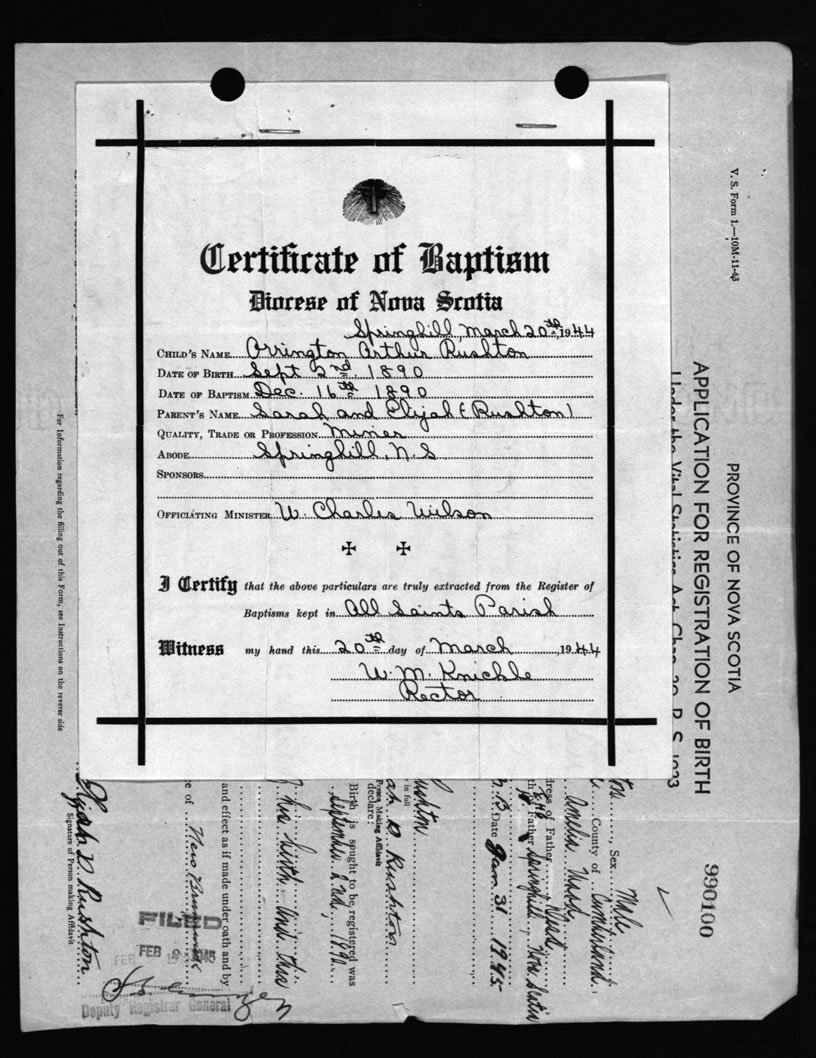 Certificate of Baptism
Diocese of Nova Scotia
Springhill, March 20th, 1944
CHILD'S NAME Orrington Arthur Rushton
DATE OF BIRTH Sept 2nd 1890
DATE OF BAPTISM Dec. 16th 1890
PARENT'S NAME Sarah and Elijah (Rushton)
QUALITY, TRADE OR PROFESSION Miner
ABODE Springhill, N.S
SPONSORS
OFFICIATING MINISTER W. Charles Wilson
I Certify that the above particulars are truly extracted from the Register of
Baptisms kept in All Saints Parish
Witness my hand this 20th day of March, 1944
W. M. Knickle
Rector
V. S. Form 1.—10M-11-43
PROVINCE OF NOVA SCOTIA
APPLICATION FOR REGISTRATION OF BIRTH
Under the Vital Statistics Act, Chap. 20, R. S. 1923
990100
, Sex Male
County of Cumberland
Amelia
dress of Father
Father Springhill, Nova Scotia
Date Jan 31 1945
Rushton
in full
D Rushton
Person Making Affidavit
declare:
Birth is sought to be registered was
September 2nd, 1890
his birth and this
and effect as if made under oath and by
New Brunswick
FILED
FEB 1945
Deputy Registrar General
Elijah D Rushton
Signature of Person making Affidavit
For Information regarding the filling out of this Form, see Instructions on the reverse side